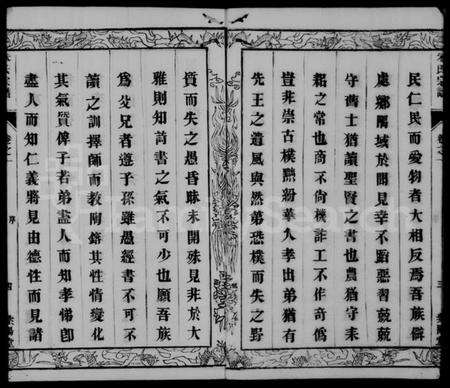 民仁民而愛物者大相反焉吾族僻
處鄉隅域於聞見幸不蹈惡習兢兢
守舊士猶讀聖賢之書也農猶守耒
耜之常也商不尚機詐工不作奇偽
豈非崇古樸黜紛華入孝出弟猶有
先王之遺風與然弟恐樸而失之野
質而失之愚昏昧未開殊見非於大
雅則知詩書之氣不可少也願吾族
為父兄者遵子孫雖愚經書不可不
讀之訓擇師而教陶鎔其性情變化
其氣質俾子若弟盡人而知孝悌卽
盡人而知仁義將見由德性而見諸
序
四
三